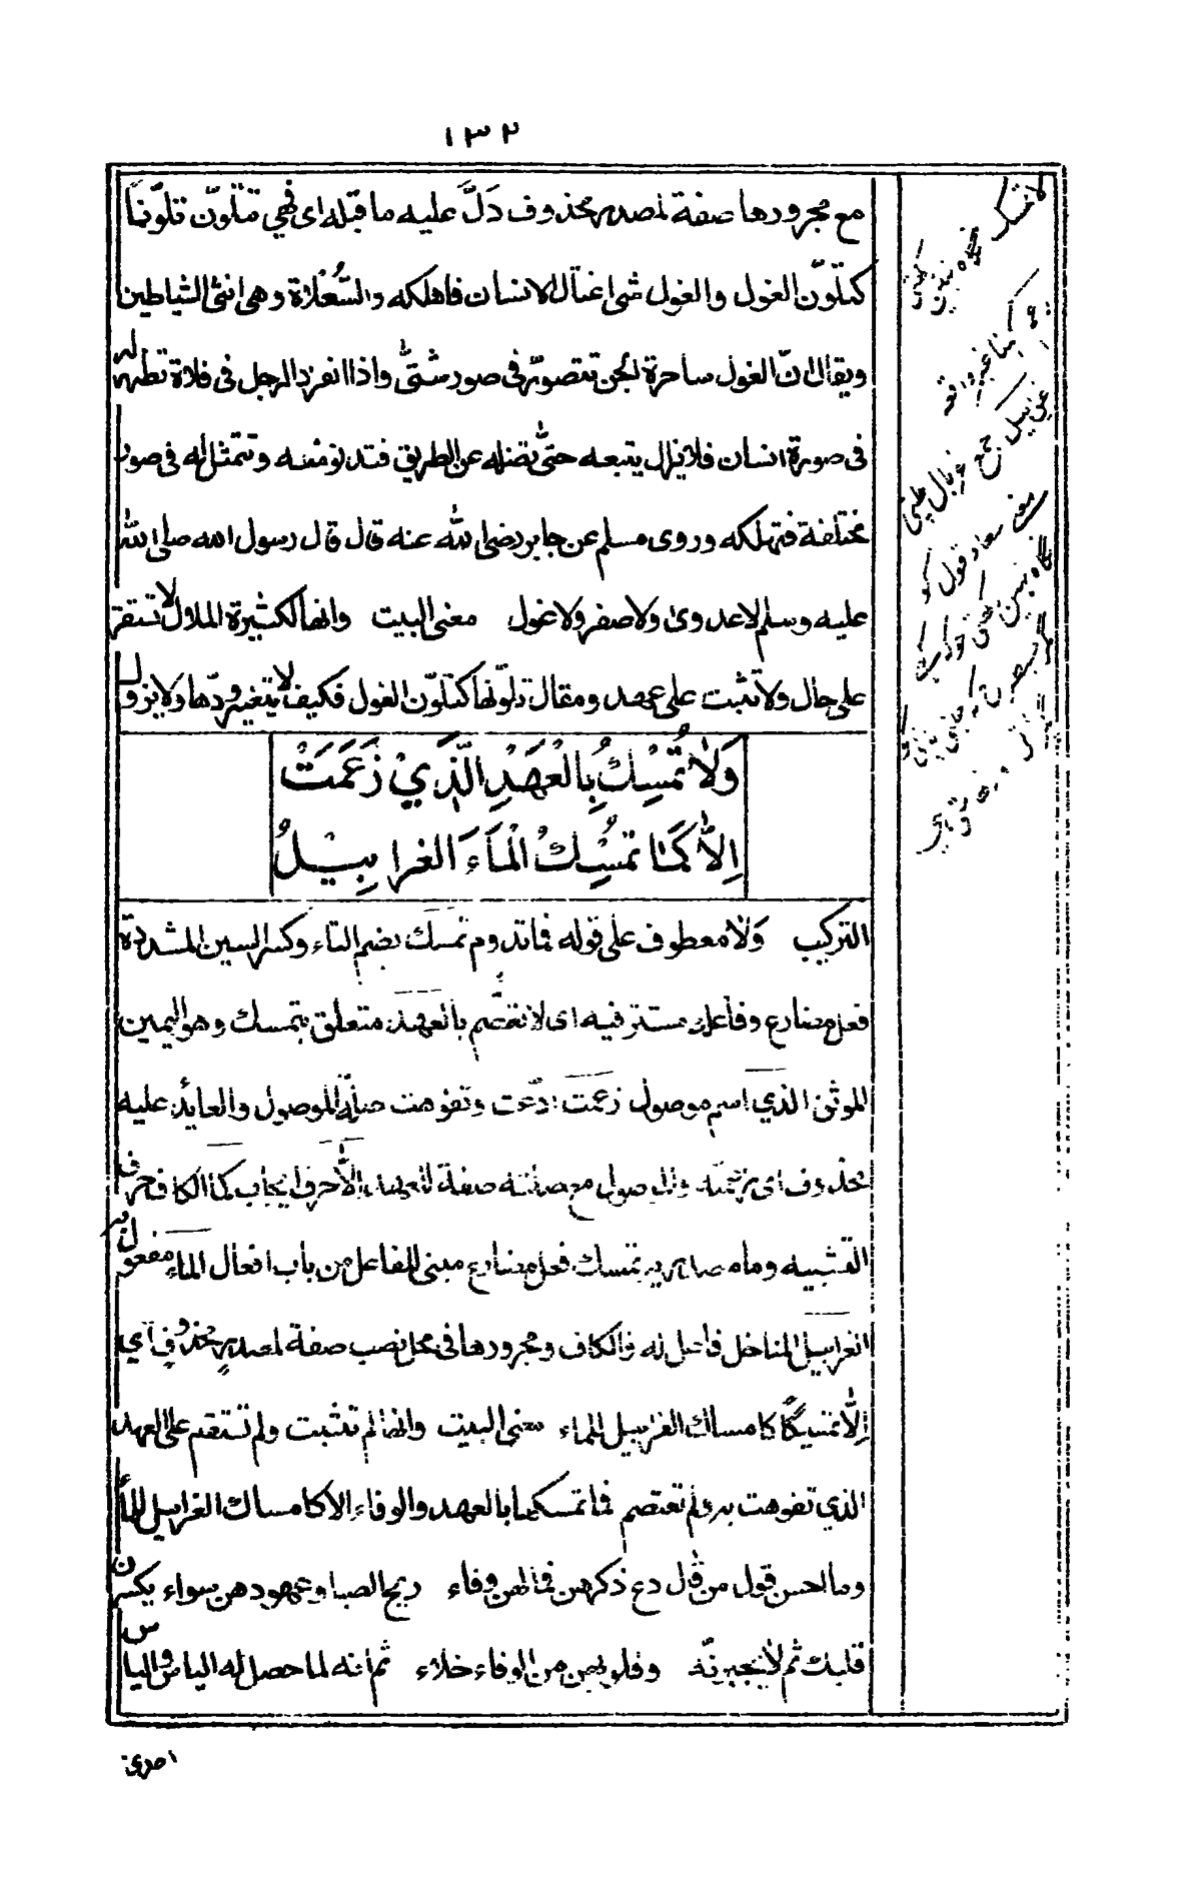 ١٣٢
مع مجرورها صفة لمصدر محذوف دَلَّ عليه ما قبله اى فهي تتلوّن تلوّناً
كتلوّن الغول والغول شى اغتال الانسان فاهلكه والسُّعْلاة وهى انثى الشياطين
ويقال انّ الغول ساحرة الجن تتصوّر فى صور شتّٰى واذا انفرد الرجل فى فلاة تظهر له
فى صورة انسان فلا يزال يتبعه حتّٰى تضله عن الطريق فتدنو منه وتتمثل له فى صور
مختلفة فتهلكه وروى مسلم عن جابر رضى الله عنه قال قال رسول الله صلى الله
عليه وسلم لا عدوى ولا صفر ولا غول معنى البيت وانها لكثيرة الملال لا تستقر
على حال ولا تثبت على عهد ومقال تلوّنها كتلوّن الغول فكيف لا يتغير ودّها ولا يزول
وَلَا تُمَسِّكُ بِالْعَهْدِ الَّذِيْ زَعَمَتْ
اِلَّا كَمَا تُمْسِكُ الْمَاءَ الغرابِيْلُ
التركيب وَلَا معطوف على قوله فما تدوم تمسك بضم التاء وكسر السين المشددة
فعل مضارع وفاعله مستتر فيه اى لا تعتصم بالعهد متعلق بتمسك وهو اليمين
الموثق الذي اسم موصول زعمت ادّعت وتفوهت صلة الموصول والعايد عليه
محذوف اى زعمته والموصول مع صلته صفة للعهد الّا حرف ايجاب كما الكاف حرف
التشبيه وما مصدرية تمسك فعل مضارع مبنى للفاعل من باب افعال الماء مفعول به
الغرابيل المناخل فاعل له والكاف ومجرورها فى محل نصب صفة لمصدرٍ محذوفٍ اي
اِلّا تمسيكًا كامساك الغرابيل الماء معنى البيت وانها لم تثبت ولم تستقم على العهد
الذي تفوهت به ولم تعتصم فما تمسكها بالعهد والوفاء الا كامساك الغرابيل للماء
وما احسن قول من قال دع ذكرهن فما لهن وفاء ريح الصبا وعهودهن سواء يكسرن
قلبك ثم لا يجبرنّه وقلوبهن من الوفاء خلاء ثم انه لما حصل له الياس والياس